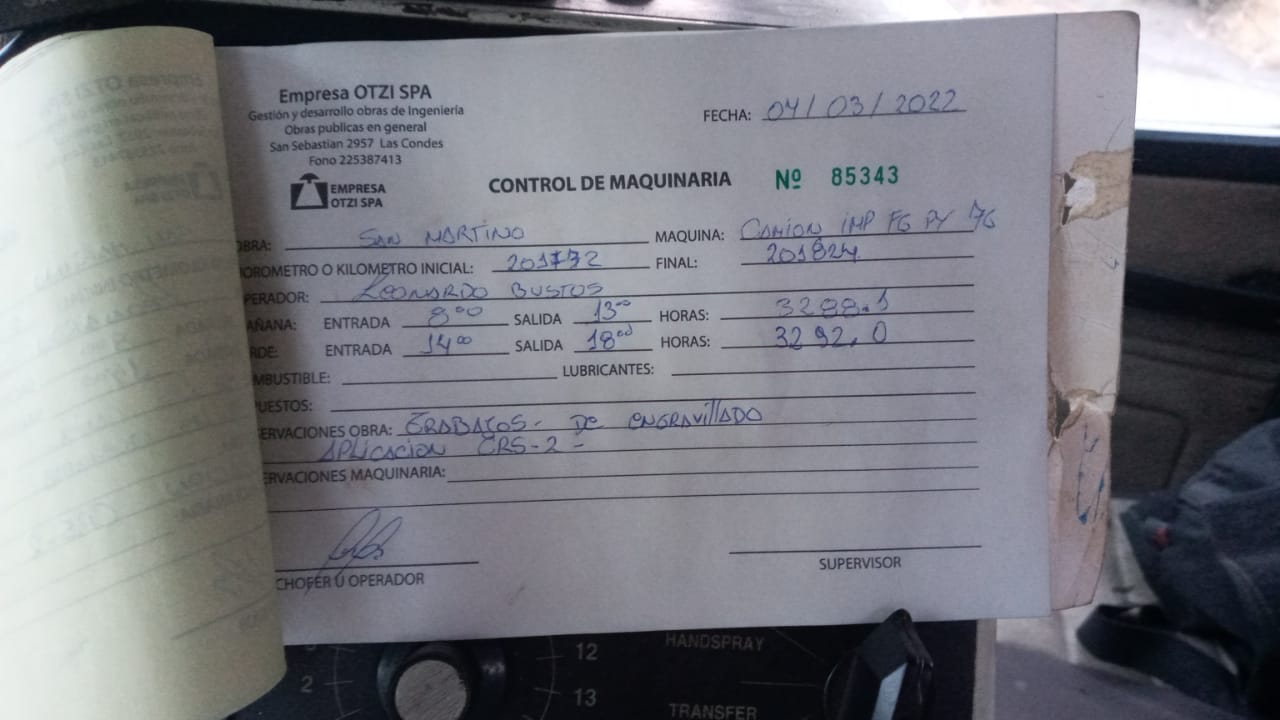 Empresa OTZI SPA
Gestión y desarrollo obras de Ingeniería
Obras publicas en general
San Sebastian 2957 Las Condes
Fono 225387413
EMPRESA
OTZI SPA
FECHA: 04/03/2022
CONTROL DE MAQUINARIA Nº 85343
OBRA: SAN MARTINO MAQUINA: CAMION IMP FG PY 76
OROMETRO O KILOMETRO INICIAL: 201772 FINAL: 201824
PERADOR: LEONARDO BUSTOS
AÑANA: ENTRADA 8:00 SALIDA 13:00 HORAS: 3288.1
RDE: ENTRADA 14:00 SALIDA 18:00 HORAS: 3292.0
MBUSTIBLE: LUBRICANTES:
PUESTOS:
SERVACIONES OBRA: TRABAJOS - DE ENGRAVILLADO
APLICACION CRS-2 -
ERVACIONES MAQUINARIA:
CHOFER U OPERADOR
SUPERVISOR
HANDSPRAY
12
2
13
TRANSFER